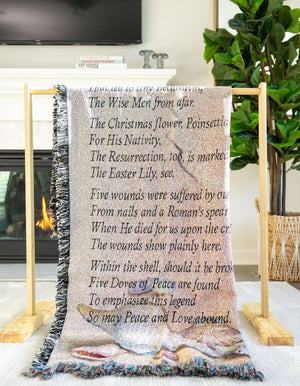 That led to tiny Bethlehem,
The Wise Men from afar.
The Christmas flower, Poinsettia
For His Nativity.
The Resurrection, too, is marked
The Easter Lily, see.
Five wounds were suffered by our
From nails and a Roman's spear
When He died for us upon the cr
The wounds show plainly here.
Within the shell, should it be brok
Five Doves of Peace are found
To emphasize this legend
So may Peace and Love abound.